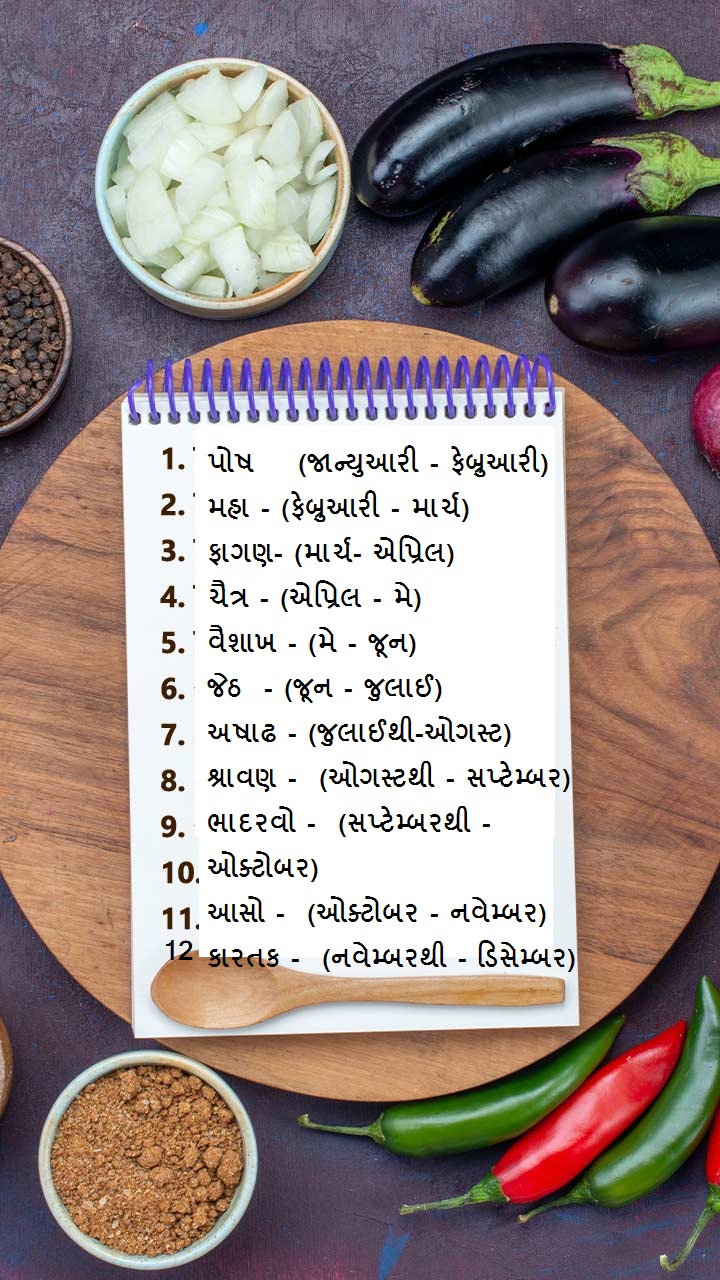 1. પોષ (જાન્યુઆરી - ફેબ્રુઆરી)
2. મહા - (ફેબ્રુઆરી - માર્ચ)
3. ફાગણ- (માર્ચ- એપ્રિલ)
4. ચૈત્ર - (એપ્રિલ - મે)
5. વૈશાખ - (મે - જૂન)
6. જેઠ - (જૂન - જુલાઈ)
7. અષાઢ - (જુલાઈથી-ઓગસ્ટ)
8. શ્રાવણ - (ઓગસ્ટથી - સપ્ટેમ્બર)
9. ભાદરવો - (સપ્ટેમ્બરથી -
10. ઓક્ટોબર)
11. આસો - (ઓક્ટોબર - નવેમ્બર)
12 કારતક - (નવેમ્બરથી - ડિસેમ્બર)